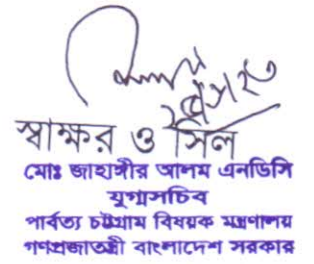 স্বাক্ষর ও সিল
মোঃ জাহাঙ্গীর আলম এনডিসি
যুগ্মসচিব
পার্বত্য চট্টগ্রাম বিষয়ক মন্ত্রণালয়
গণপ্রজাতন্ত্রী বাংলাদেশ সরকার